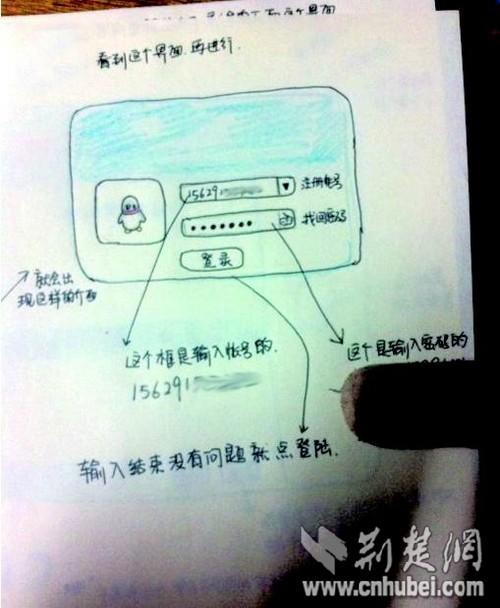 看到这个界面.再进行.
156291
注册账号
●●●●●●●
找回密码
登录
就会出
现这样的介面
这个框是输入帐号的.
156291
这个是输入密码的
输入结束没有问题就点登陆.
荆楚網
www.cnhubei.com